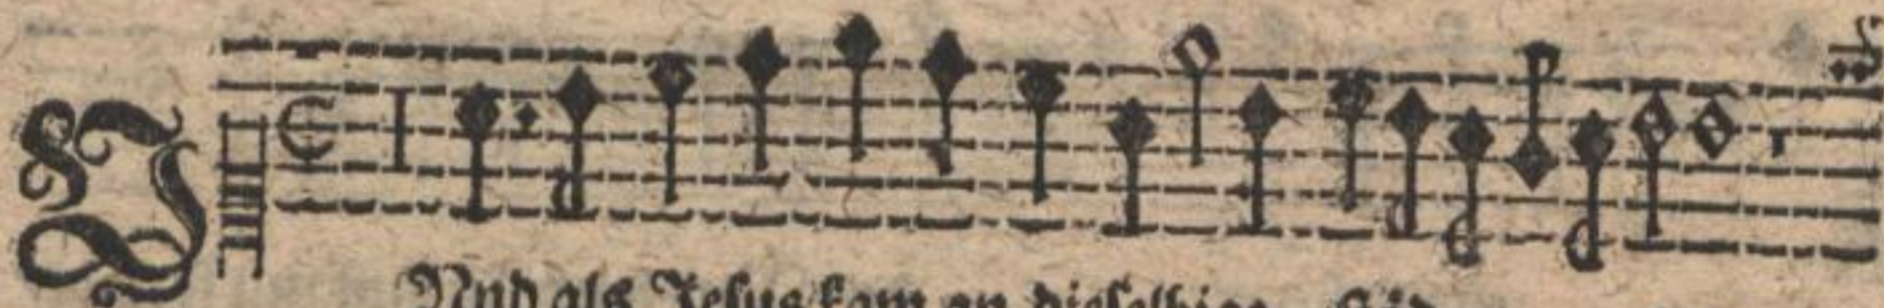 Vnd als Jesus kam an dieselbige